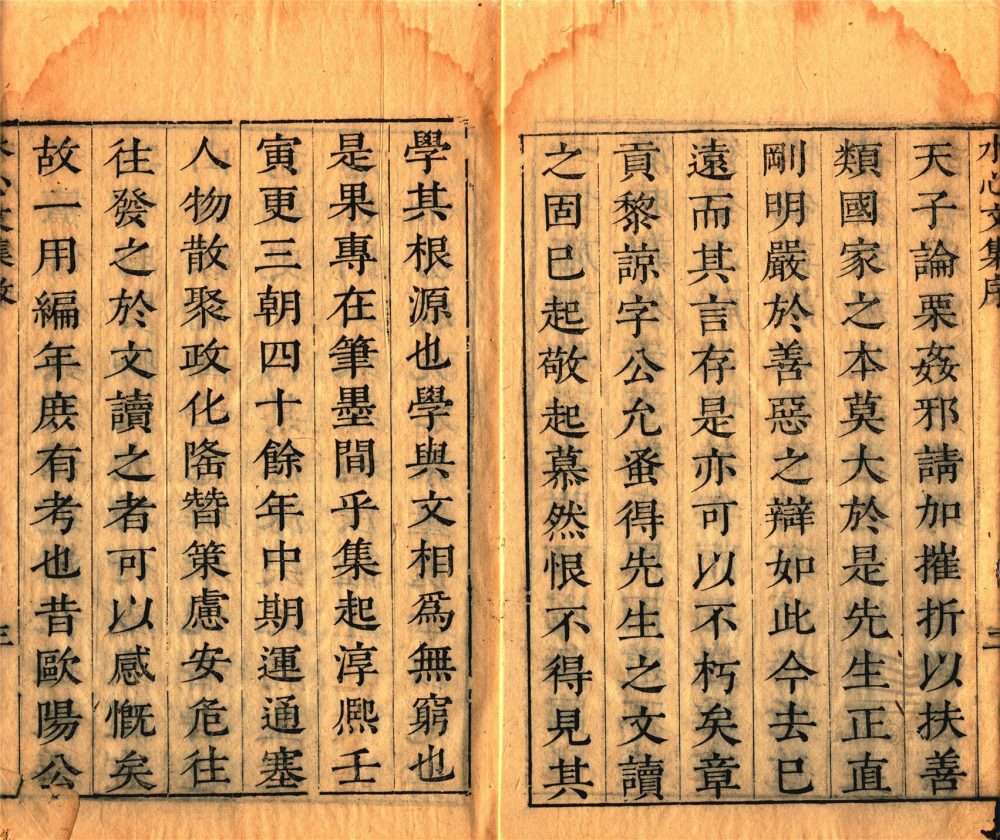 水心文集序
天子論栗姦邪請加摧折以扶善
類國家之本莫大於是先生正直
剛明嚴於善惡之辯如此今去巳
遠而其言存是亦可以不朽矣章
貢黎諒字公允蚤得先生之文讀
之固巳起敬起慕然恨不得見其
學其根源也學與文相爲無窮也
是果專在筆墨間乎集起淳熈壬
寅更三朝四十餘年中期運通塞
人物散聚政化隆替策慮安危往
往發之於文讀之者可以感慨矣
故一用編年庻有考也昔歐陽公
三